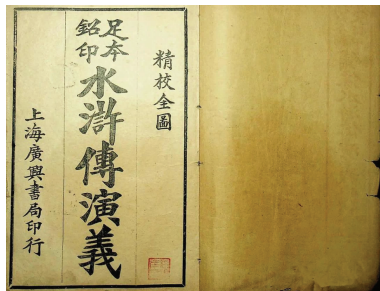 精校全圖
足本
鉛印
水滸傳演義
上海廣興書局印行